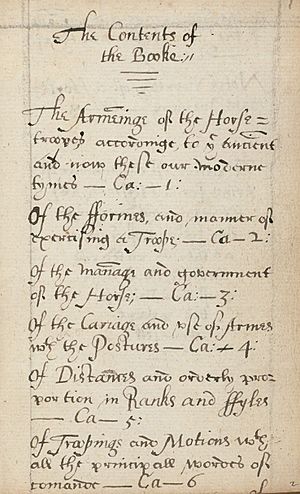 The Contents of
the Booke://
The Armeinge of the Horse=
troopes accordinge, to yͤ Auncient
and now these our moderne
tymes — Ca: — 1:
Of the fformes, and manner of
exercising a Troope; — Ca — 2:
Of the mannage and government
of the Horse; — Ca: — 3:
Of the Cariage and use of Armes
wᵗʰ the Postures — Ca: — 4:
Of Distances and orderly pro=
portion in Ranks and ffyles
— Ca — 5:
Of Troopings and Motions wᵗʰ
all the principall wordes of
comande — Ca — 6